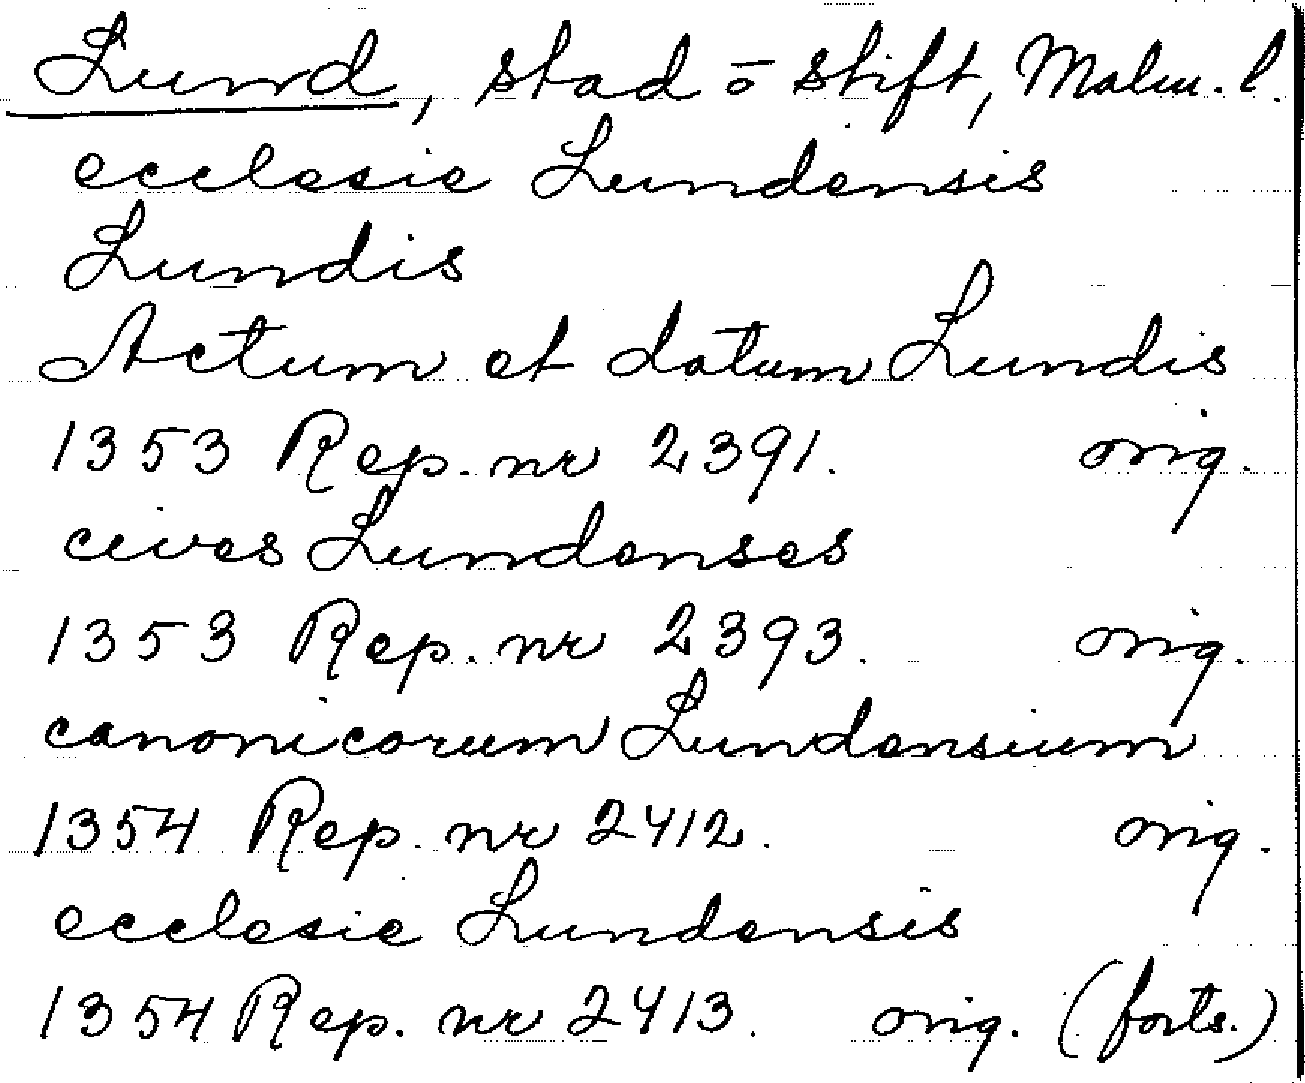 Lund, stad o stift, Malm. l.
ecclesie Lundensis
Lundis
Actum et datum Lundis
1353 Rep. nr 2391. orig.
cives Lundenses
1353 Rep. nr 2393. orig.
canonicorum Lundensium
1354 Rep. nr 2412. orig.
ecclesie Lundensis
1354 Rep. nr 2413. orig. (forts.)